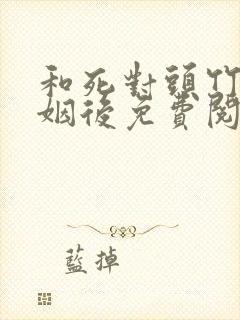 和死對頭竹
姻後免費閱
藍掉